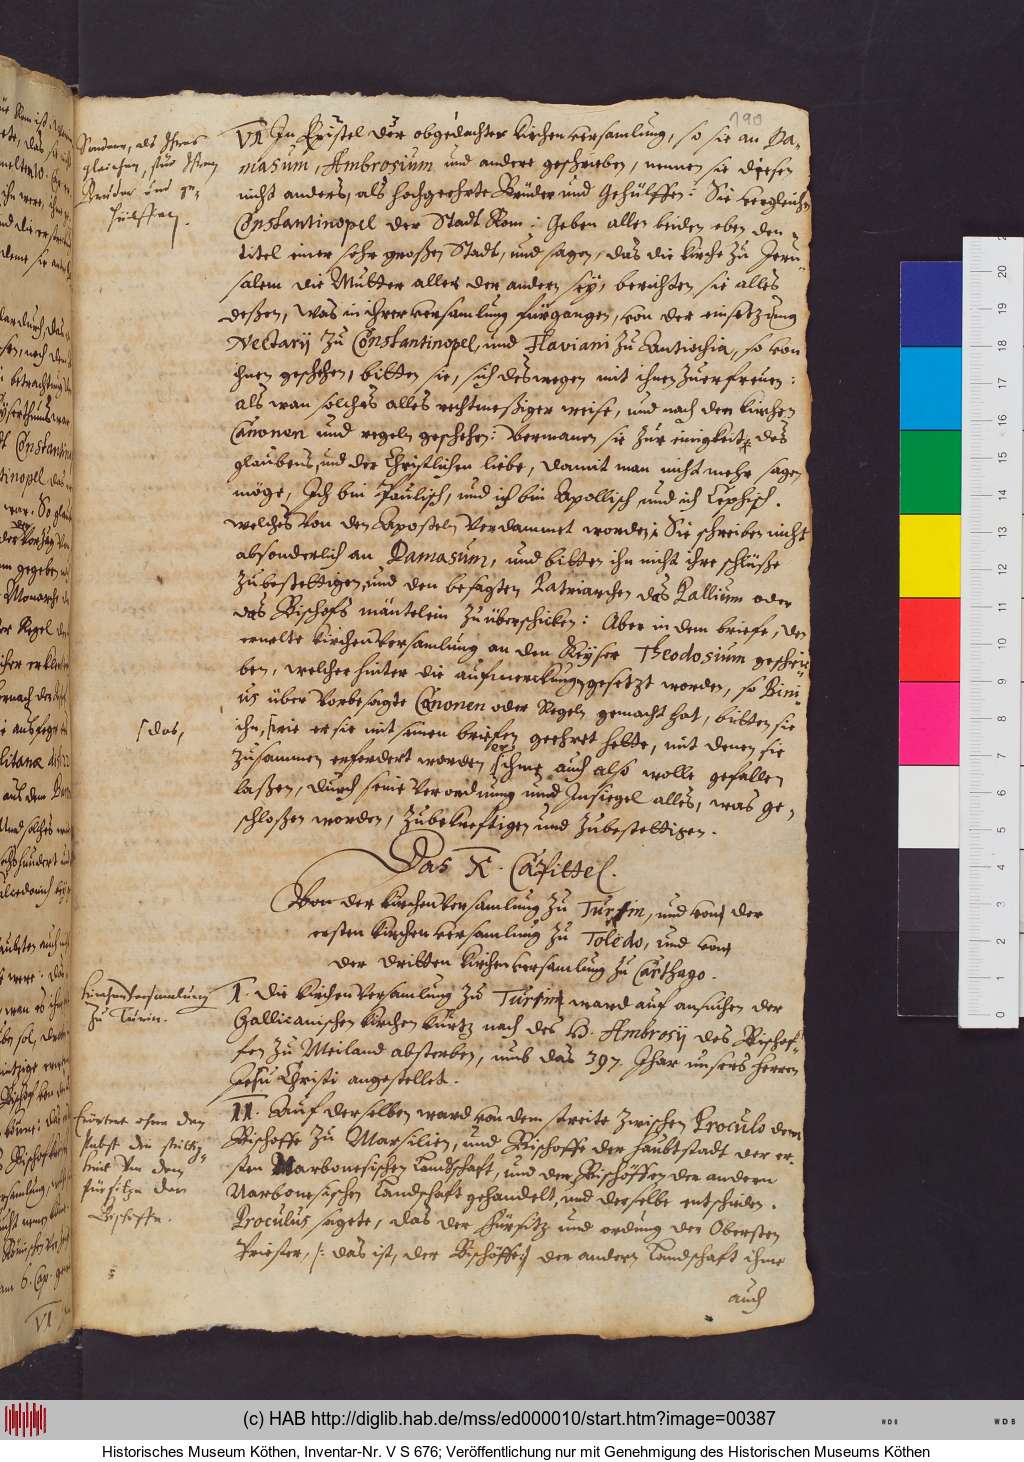 190
Sondern, als Ihres
gleichen, für Ihren
Bruder und ge-
hülffen.
VI In Epistel der obgedachter kirchenversamlung, so sie an Da-
masum, Ambrosium und andere geschrieben, nennen sie diesen
nicht anders, als hochgeehrte Brüder und Gehülffen: Sie vergleichen
Constantinopel der Stadt Rom: Geben allen beiden eben den
titel einer sehr großen Stadt, und sagen, das die kirche zu Jeru-
salem die Mutter aller der andern sey, berichten sie alles
deßen, was in ihrer versamlung fürgangen, von der einsetzung
Nectarij zu Constantinopel, und Flaviani zu Antiochia, so von
ihnen geschehen, bitten sie, sich deswegen mit ihnen zuerfreuen:
als wan solches alles rechtmeßiger weise, und nach den kirchen
Canonen und regeln geschehen: Vermanen sie zur einigkeit des
glaubens, und der Christlichen liebe, damit man nicht mehr sagen
möge, Ich bin Paulisch, und ich bin Apollisch und ich Cephisch.
welches von den Aposteln verdammet worden: Sie schreiben nicht
absonderlich an Damasum, und bitten ihn nicht ihre schlüße
zubestettigen, und den besagten Patriarchen das Pallium oder
das Bischofs mäntelein zuüberschicken: Aber in dem briefe, den
ermelte kirchenversamlung an den Keyser Theodosium geschrie-
ben, welcher hinter die aufmerckung gesetzt worden, so Bini-
us über vorbesagte Canonen oder Regeln gemacht hat, bitten sie
ihn, wie er sie mit seinen briefen geehret hette, mit denen sie
das,
zusammen erfordert worden er ihme auch also wolle gefallen
laßen, durch seine verordnung und Insiegel alles, was ge-
schloßen worden, zubekreftigen und zubestettigen.
Das X. Capittel.
Von der kirchenversamlung zu Turin, und von der
ersten kirchenversamlung zu Toledo, und von
der dritten kirchenversamlung zu Carthago.
kirchenversamlung
zu Turin.
I. Die kirchenversamlung zu Turin ward auf ansuchen der
Gallicanischen kirchen kurtz nach des H. Ambrosij des Bischof-
fen zu Meiland absterben, umb das 397. Jhar unsers herren
Jesu Christi angestellet.
Erörtert ohne den
Pabst die strittig-
keit von dem
fürsitze der
Bischoffe.
II. Auf derselben ward von dem streite zwischen Proculo dem
Bischoffe zu Marsilien, und Bischoffe der haubtstadt der er-
sten Narbonesischen Landschaft, und den Bischöffen der andern
Narbonesischen Landschaft gehandelt, und derselbe entschieden.
Proculus sagete, das der fürsitz und ordnung der Obersten
Priester, /: das ist, der Bischöffe :/ der andern Landschaft ihme
auch
(c) HAB http://diglib.hab.de/mss/ed000010/start.htm?image=00387
Historisches Museum Köthen, Inventar-Nr. V S 676; Veröffentlichung nur mit Genehmigung des Historischen Museums Köthen